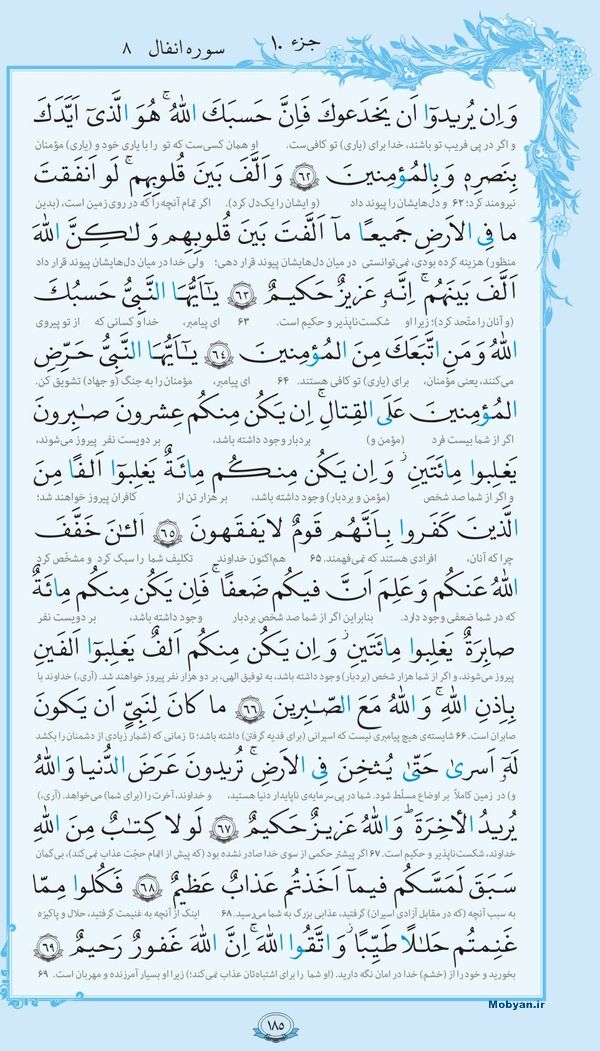 جزء ۱۰
سوره انفال ۸
وَ اِن یُریدوٓا اَن یَخدَعوکَ فَاِنَّ حَسبَکَ اللهُ ۚ هُوَ الَّذیٓ اَیَّدَکَ
و اگر در پی فریب تو باشند، خدا برای (یاری) تو کافی‌ست. او همان کسی‌ست که تو را با یاری خود و (یاری) مؤمنان
بِنَصرِهٖ وَ بِالمُؤمِنینَ ﴿۶۲﴾ وَ اَلَّفَ بَینَ قُلوبِهِم ۚ لَو اَنفَقتَ
نیرومند کرد؛ ۶۲ و دل‌هایشان را پیوند داد (و ایشان را یک‌دل کرد). اگر تمام آنچه را که در روی زمین است، (بدین
ما فِی الاَرضِ جَمیعًا مآ اَلَّفتَ بَینَ قُلوبِهِم وَ لٰـکِنَّ اللهَ
منظور) هزینه کرده بودی، نمی‌توانستی در میان دل‌هایشان پیوند قرار دهی؛ ولی خدا در میان دل‌هایشان پیوند قرار داد
اَلَّفَ بَینَهُم ۚ اِنَّهٗ عَزیزٌ حَکیمٌ ﴿۶۳﴾ یٰٓاَیُّهَا النَّبِیُّ حَسبُکَ
(و آنان را متّحد کرد)؛ زیرا او شکست‌ناپذیر و حکیم است. ۶۳ ای پیامبر، خدا و کسانی که از تو پیروی
اللهُ وَ مَنِ اتَّبَعَکَ مِنَ المُؤمِنینَ ﴿۶۴﴾ یٰٓاَیُّهَا النَّبِیُّ حَرِّضِ
می‌کنند، یعنی مؤمنان، برای (یاری) تو کافی هستند. ۶۴ ای پیامبر، مؤمنان را به جنگ (و جهاد) تشویق کن.
المُؤمِنینَ عَلَی القِتالِ ۚ اِن یَکُن مِنکُم عِشرونَ صٰبِرونَ
اگر از شما بیست فرد (مؤمن و) بردبار وجود داشته باشد، بر دویست نفر پیروز می‌شوند،
یَغلِبوا مِائَتَینِ ۚ وَ اِن یَکُن مِنکُم مِائَةٌ یَغلِبوٓا اَلفًا مِنَ
و اگر از شما صد شخص (مؤمن و بردبار) وجود داشته باشد، بر هزار تن از کافران پیروز خواهند شد؛
الَّذینَ کَفَروا بِاَنَّهُم قَومٌ لا یَفقَهونَ ﴿۶۵﴾ اَلـٰٔـنَ خَفَّفَ
چرا که آنان، افرادی هستند که نمی‌فهمند. ۶۵ هم‌اکنون خداوند تکلیف شما را سبک کرد و مشخّص کرد
اللهُ عَنکُم وَ عَلِمَ اَنَّ فیکُم ضَعفًا ۚ فَاِن یَکُن مِنکُم مِائَةٌ
که در شما ضعفی وجود دارد. بنابراین اگر از شما صد شخص بردبار وجود داشته باشد، بر دویست نفر
صابِرَةٌ یَغلِبوا مِائَتَینِ ۚ وَ اِن یَکُن مِنکُم اَلفٌ یَغلِبوٓا اَلفَینِ
پیروز می‌شوند، و اگر از شما هزار شخص (بردبار) وجود داشته باشد، به توفیق الهی، بر دو هزار نفر پیروز خواهند شد. (آری،) خداوند با
بِاِذنِ اللهِ ۗ وَ اللهُ مَعَ الصّٰبِرینَ ﴿۶۶﴾ ما کانَ لِنَبِیٍّ اَن یَکونَ
صابران است. ۶۶ شایسته‌ی هیچ پیامبری نیست که اسیرانی (برای فدیه گرفتن) داشته باشد؛ تا زمانی که (شمار زیادی از دشمنان را بکشد
لَهٗٓ اَسریٰ حَتّیٰ یُثخِنَ فِی الاَرضِ ۚ تُریدونَ عَرَضَ الدُّنیا وَ اللهُ
و) در زمین کاملاً بر اوضاع مسلّط شود. شما در پی سرمایه‌ی ناپایدار دنیا هستید، و خداوند، آخرت را (برای شما) می‌خواهد. (آری،)
یُریدُ الأخِرَةَ ۗ وَ اللهُ عَزیزٌ حَکیمٌ ﴿۶۷﴾ لَولا کِتٰبٌ مِنَ اللهِ
خداوند، شکست‌ناپذیر و حکیم است. ۶۷ اگر پیشتر حکمی از سوی خدا صادر نشده بود (که پیش از اتمام حجّت عذاب نمی‌کند)، بی‌گمان
سَبَقَ لَمَسَّکُم فیمآ اَخَذتُم عَذابٌ عَظیمٌ ﴿۶۸﴾ فَکُلوا مِمّا
به سبب آنچه (که در مقابل آزادی اسیران) گرفتید، عذابی بزرگ به شما می‌رسید. ۶۸ اینک از آنچه به غنیمت گرفتید، حلال و پاکیزه
غَنِمتُم حَلٰلًا طَیِّبًا ۚ وَ اتَّقُوا اللهَ ۚ اِنَّ اللهَ غَفورٌ رَحیمٌ ﴿۶۹﴾
بخورید و خود را از (خشم) خدا در امان نگه دارید. (او شما را برای اشتباه‌تان عذاب نمی‌کند؛) زیرا او بسیار آمرزنده و مهربان است. ۶۹
Mobyan.ir
۱۸۵